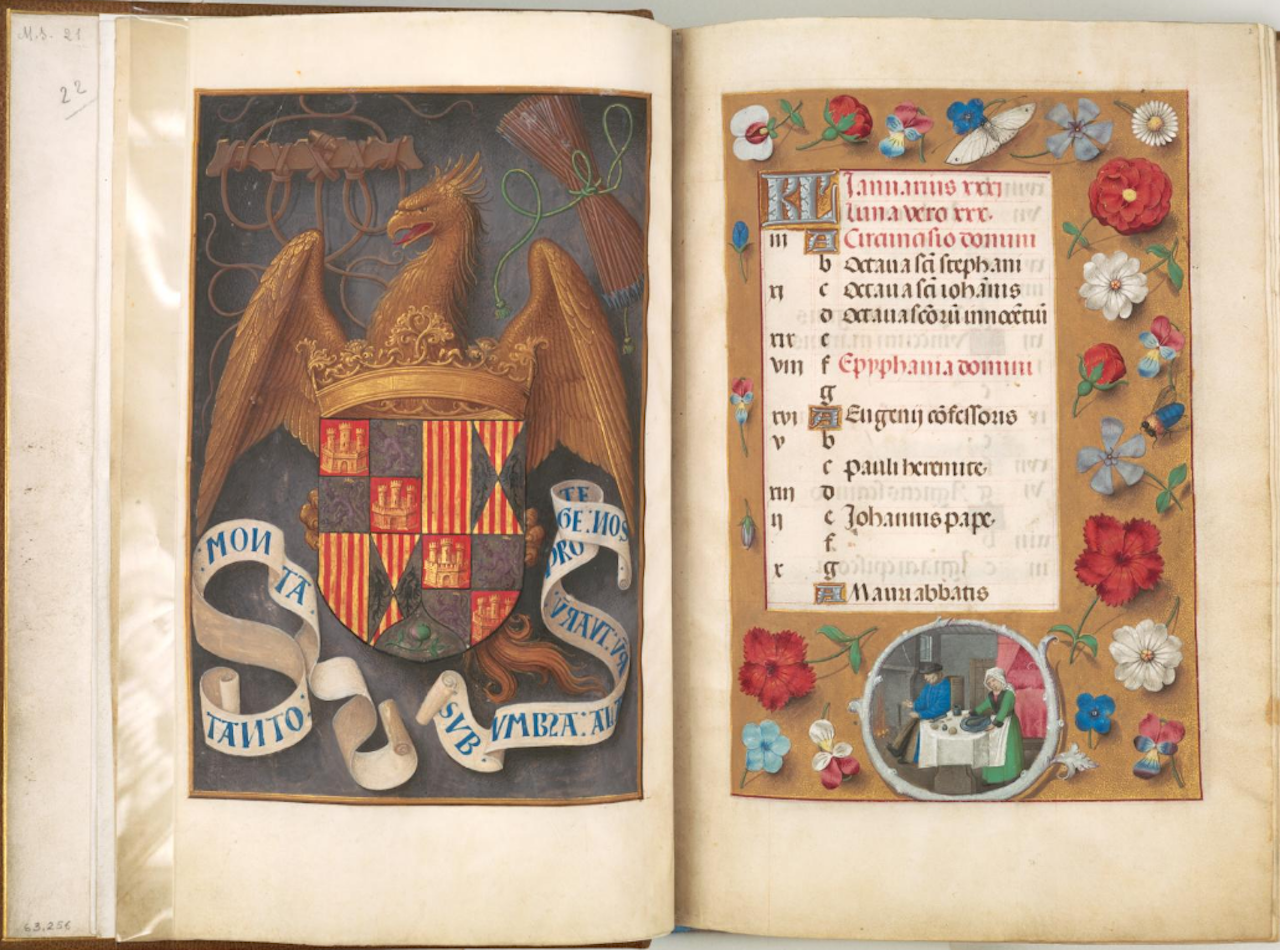 M.S. 21
22
63.256
MON
TA
TANTO
SVB
VMBRA:
TE
GE:NOS
KL Januarius xxxj
luna vero xxx.
iii A Circūcisio domini
b Octaua sc̄i stephani
xj c Octaua sc̄i ioh̄anis
d octaua sc̄orū innocētiū
xix e
viii f Epyphania domini
g
xvi A Eugenij cōfessoris
v b
c Pauli heremite.
xiii d
ij e Johannis pape.
f
x g
A Mauri abbatis